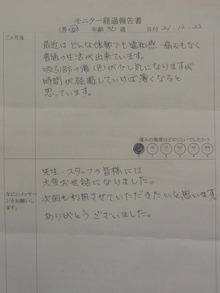 モニター経過報告書
(男・女) 年齢 30 歳 日付 21.12.22
最近は どんな体勢でも違和感・痛みもなく
普通の生活が出来ています。
吸引部分の傷(色)が少し気になりますが
時間が経過していけば薄くなると
思っています。
痛みの程度はどのくらいでしたか?
先生・スタッフの皆様には
大変お世話になりました。
次回も利用させていただきたいと思います。
ありがとうございました。